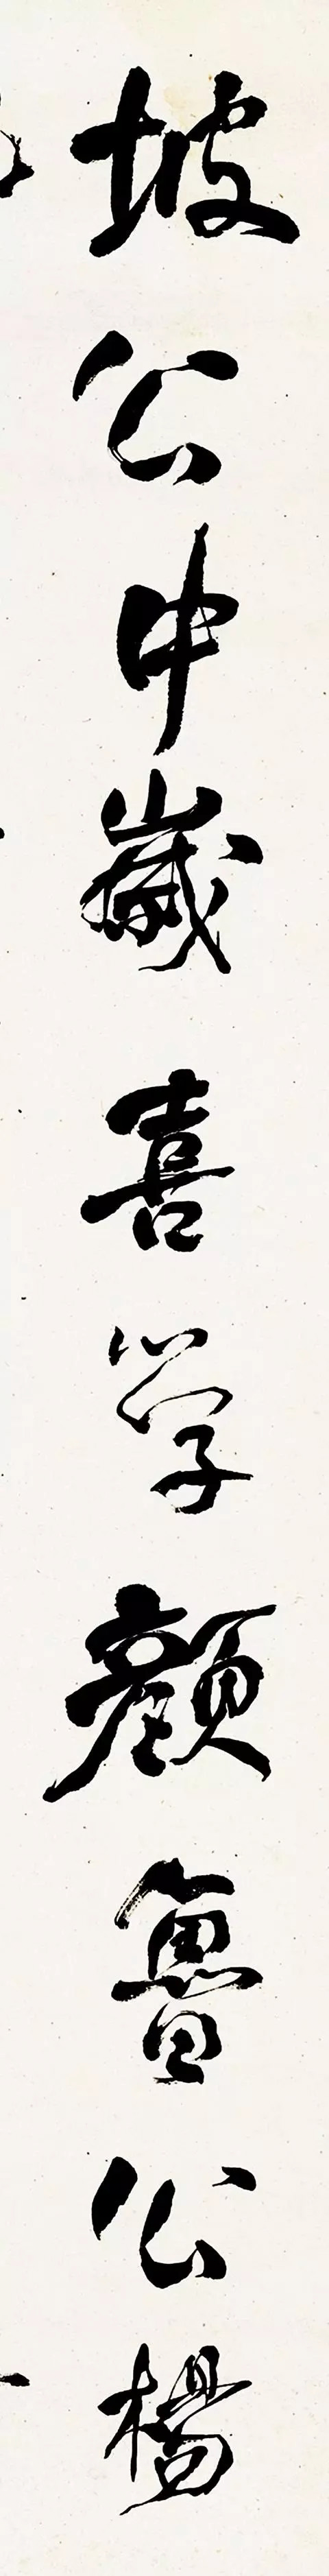 坡公中歲喜学顏魯公楊